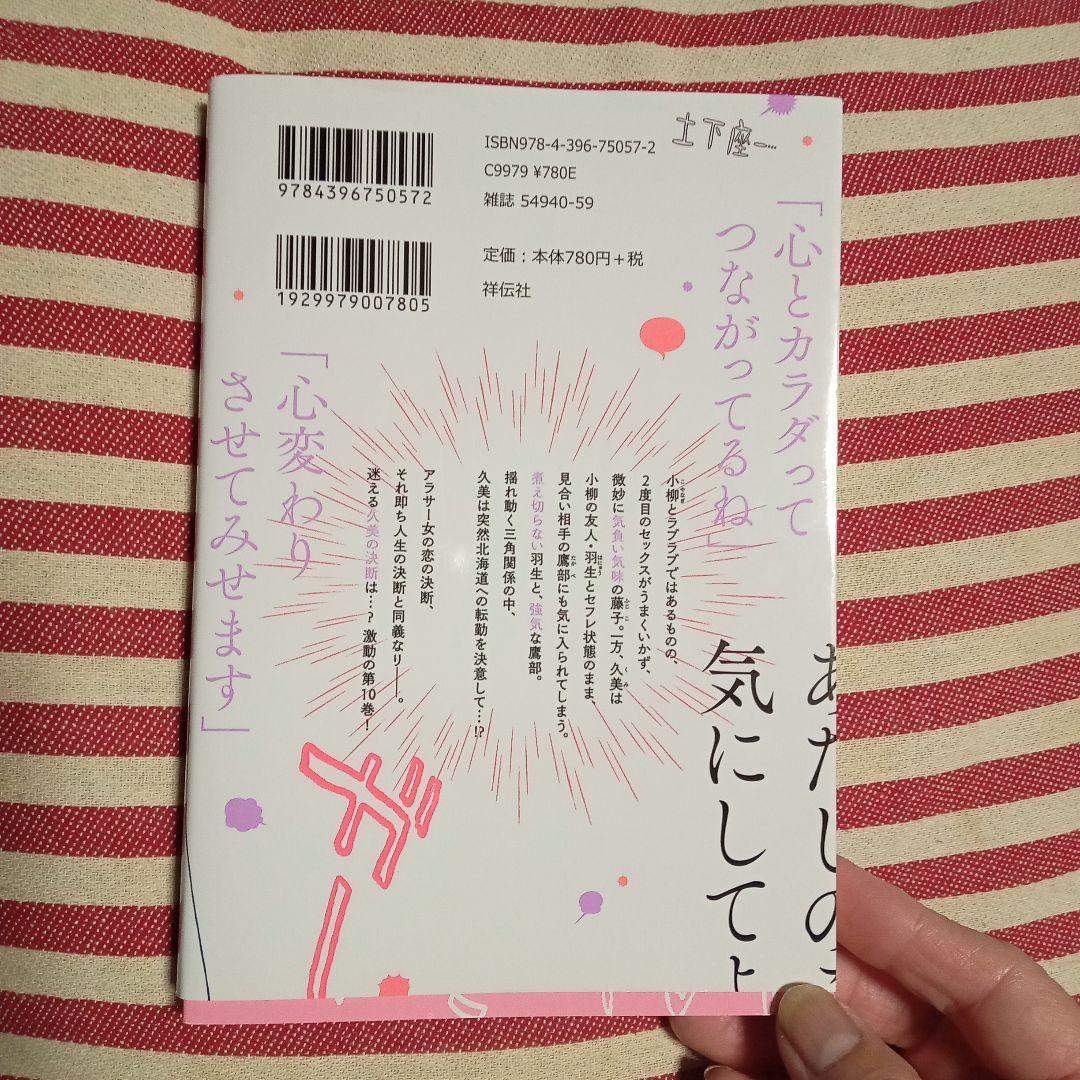 ISBN978-4-396-75057-2
C9979 ¥780E
雑誌 54940-59
9784396750572
定価：本体780円＋税
祥伝社
1929979007805
土下座ー…
「心とカラダって
つながってるね」
小柳とラブラブではあるものの、
2度目のセックスがうまくいかず、
微妙に気負い気味の藤子。一方、久美は
小柳の友人・羽生とセフレ状態のまま、
見合い相手の鷹部にも気に入られてしまう。
煮え切らない羽生と、強気な鷹部。
揺れ動く三角関係の中、
久美は突然北海道への転勤を決意して…!?
アラサー女の恋の決断、
それ即ち人生の決断と同義なり――。
迷える久美の決断は…? 激動の第10巻！
「心変わり
させてみせます」
あたしの
気にしてよ
ガー